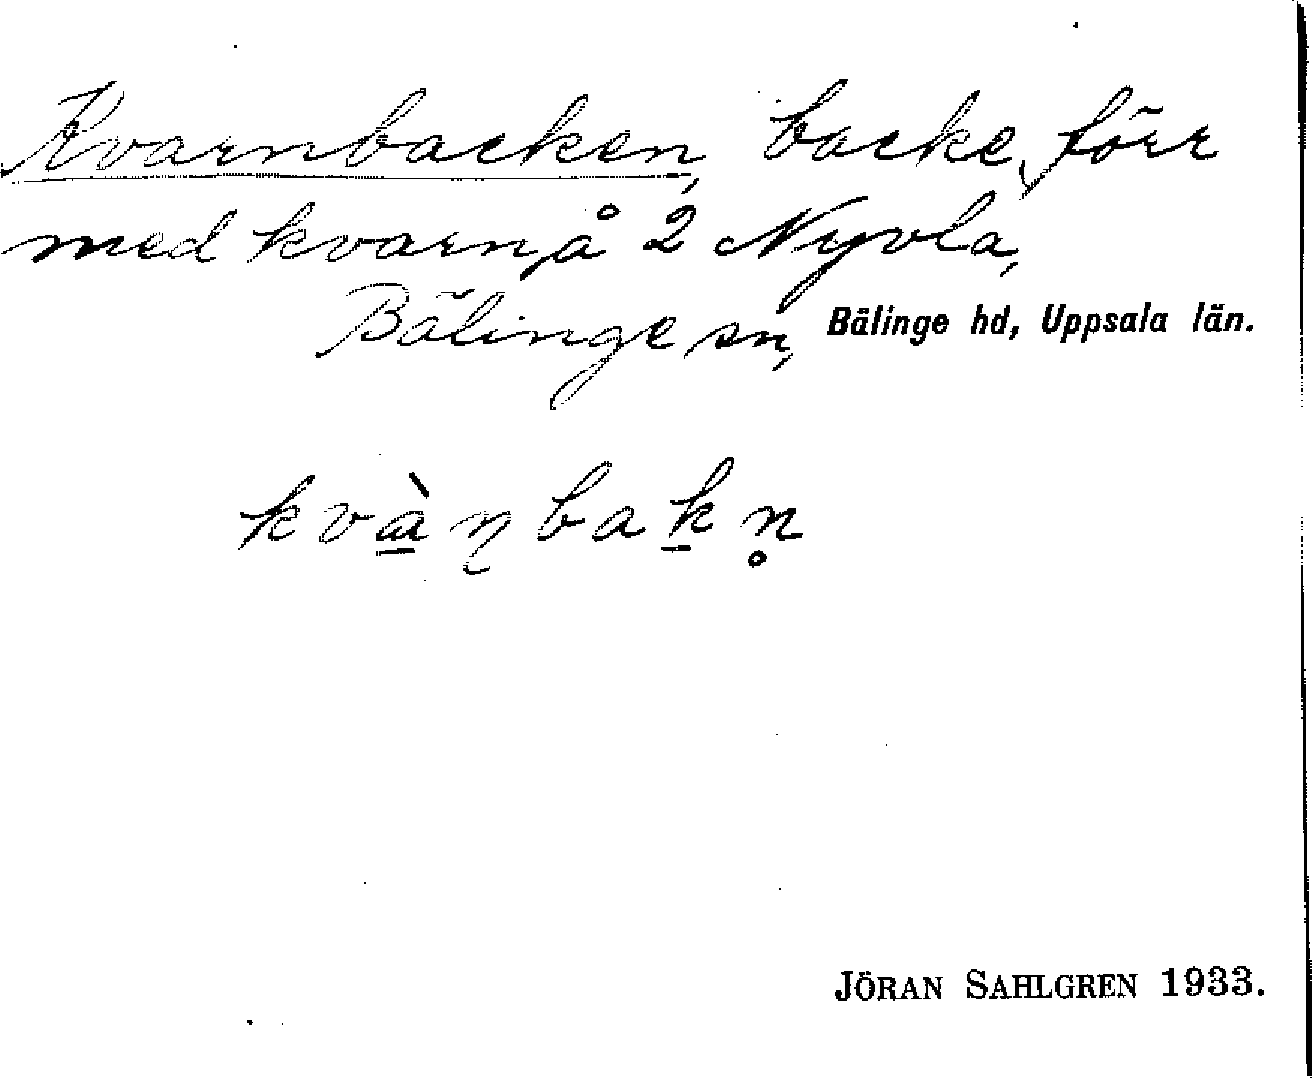 Kvarnbacken, backe, förr
med kvarn, å 2 Nyvla,
Bälinge sn, Bälinge hd, Uppsala län.
kvàɳbakn̥
JÖRAN SAHLGREN 1933.